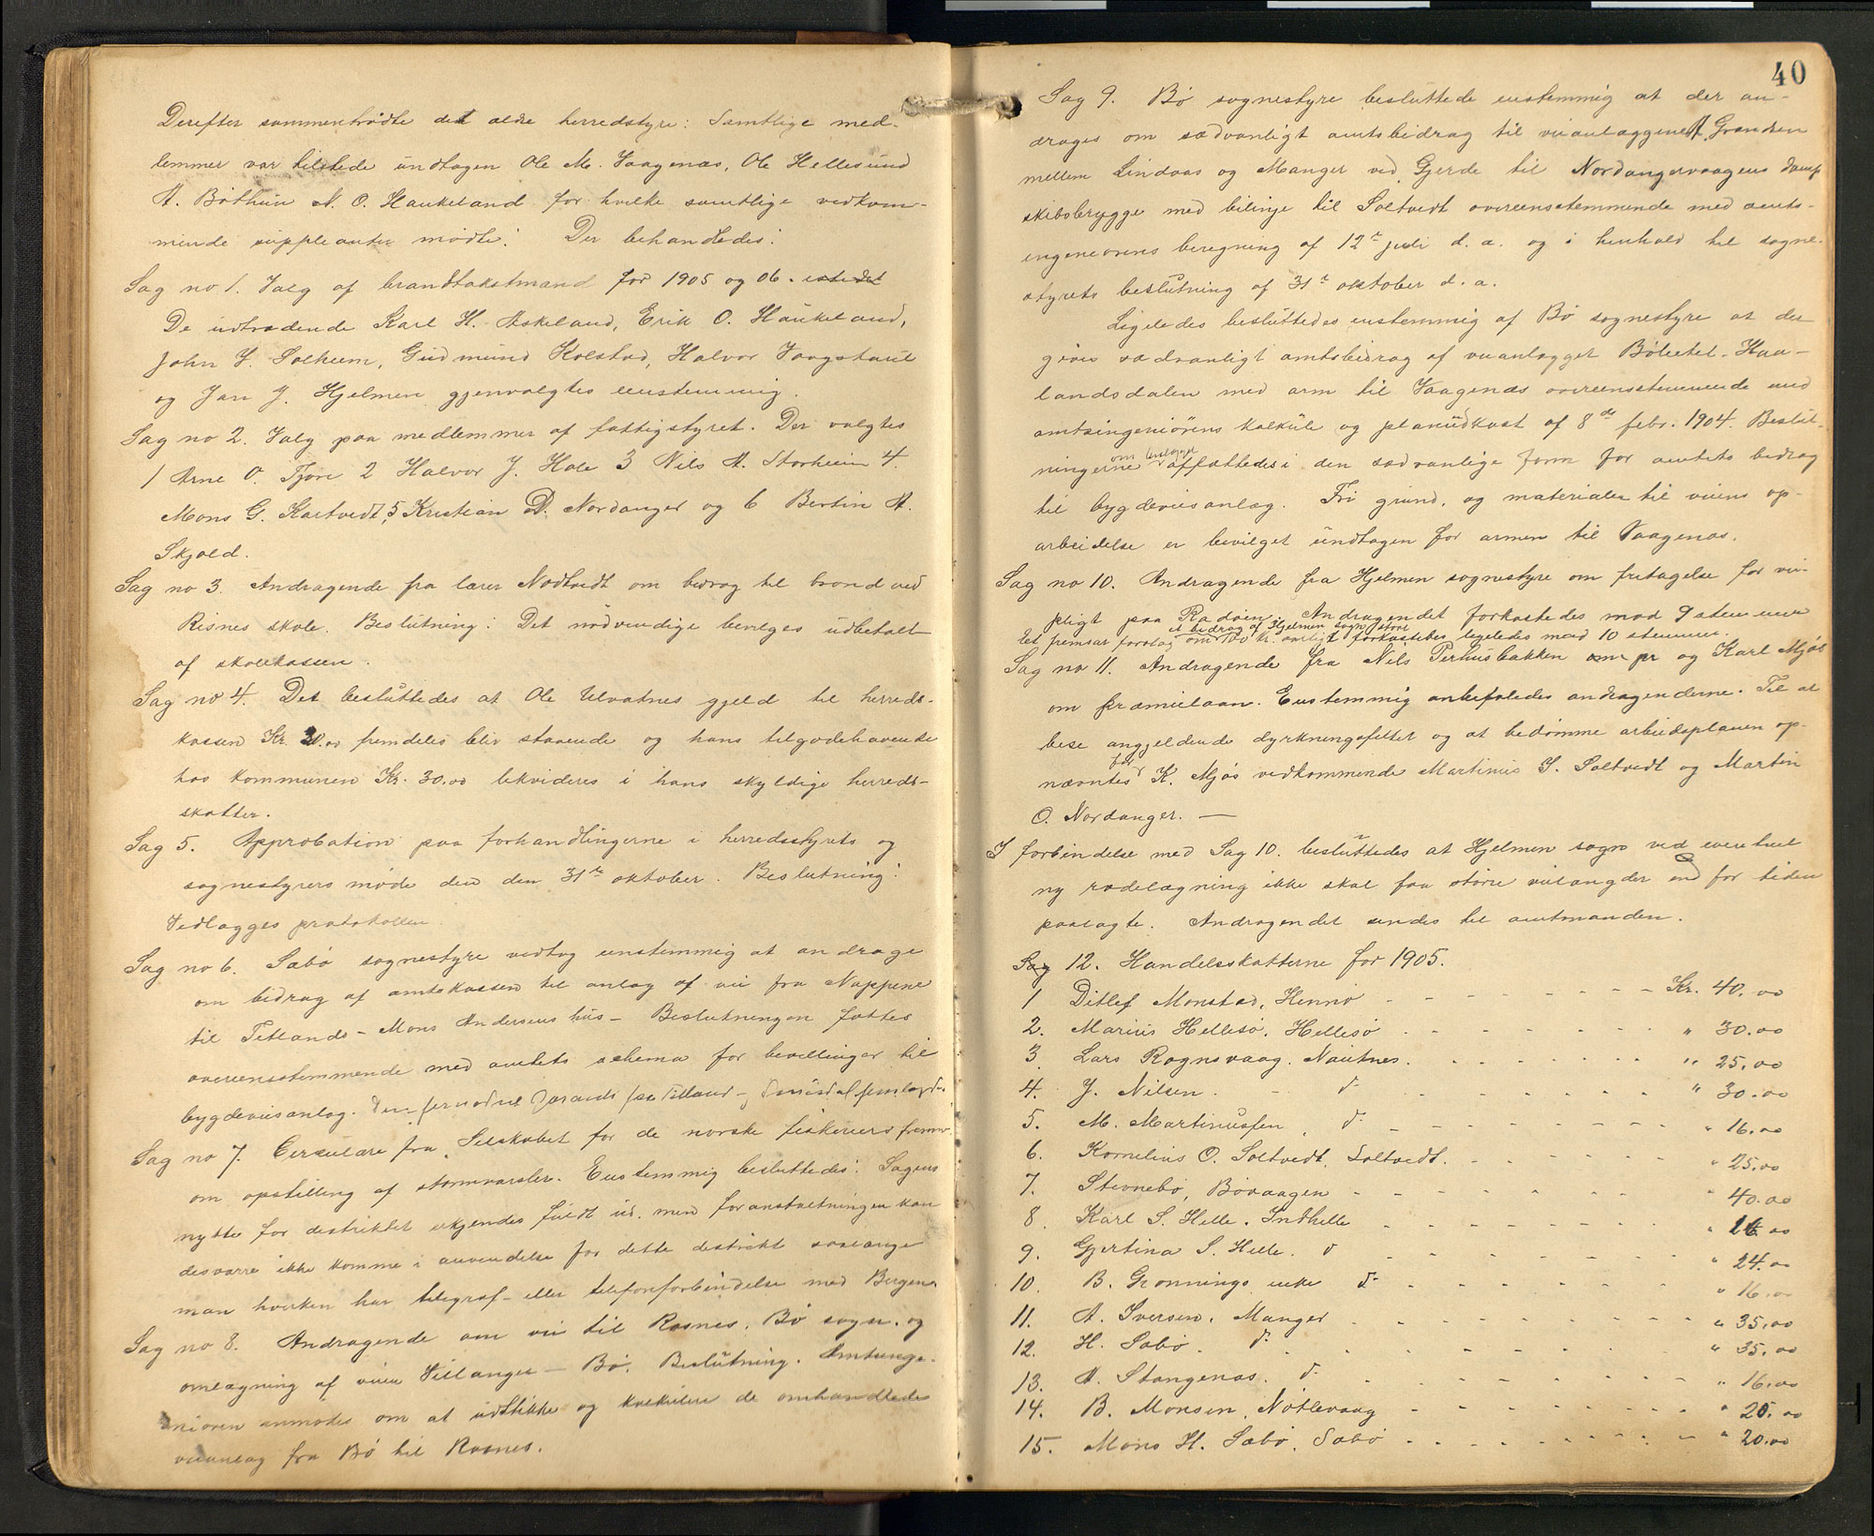 Derefter sammentrådte det ældre herredstyre: Samtlige med-
lemmer var tilstede undtagen Ole M. Vaagenæs, Ole Hellesund
A. Böthun N. O. Haukeland for hvilke samtlige vedkom-
mende suppleanter mødte. Der behandledes:
Sag no 1. Valg af brandtakstmænd for 1905 og 06.
De udtrædende Karl H. Askeland, Erik O. Haukeland,
John J. Solheim, Gudmund Kolstad, Halvor Vaagstaul
og Jan J. Hjelmen gjenvalgtes eenstemmig.
Sag no 2. Valg paa medlemmer af fattigstyret. Der valgtes
1 Arne O. Fjøre 2 Halvor J. Hole 3 Nils A. Storheim 4.
Mons G. Kartvedt, 5 Kristian D. Nordanger og 6 Bertin A.
Skjold.
Sag no 3. Andragende fra lærer Nødtvedt om bidrag til brønd ved
Risnes skole. Beslutning: Det nødvendige bevilges udbetalt
af skolekassen.
Sag no 4. Det besluttedes at Ole Ulvatnes gjeld til herreds-
kassen Kr. fremdeles blir staaende og hans tilgodehavende
hos kommunen Kr. 30.00 lekvideres i hans skyldige herreds-
skatter.
Sag 5. Approbation paa forhandlingerne i herredsstyrets og
sognestyrers møde den den 31te oktober. Beslutning:
Vedlægges protokollen.
Sag no 6. Sæbø sognestyre vedtog eenstemmig at andrage
om bidrag af amtskassen til anlæg af vei fra Nappene
til Tetlands - Mons Andersens hus - Beslutningen fattes
overeensstemmende med amtets schema for bevillinger til
bygdeveisanlæg.
Sag no 7. Circulære fra Selskabet for de norske fiskeriers fremme
om opstilling af stormvarsler. Eenstemmig besluttedes: Sagens
nytte for distriktet erkjendes fuldt ud, men foranstaltningen kan
desværre ikke komme i anvendelse for dette destrikt saalænge
man hverken har telegraf- eller telefonforbindelse med Bergen.
Sag no 8. Andragende om vei til Rosnes, Bø sogn, og
omlægning af veien Villanger - Bø. Beslutning. Amtsinge-
niøren anmodes om at udstikke og kalkulere de omhandlede
veianlæg fra Bø til Rosnes.
40
Sag 9. Bø sognestyre besluttede eenstemmig at der an-
drages om sædvanligt amtsbidrag til veianlæggene Grensen
mellem Lindaas og Manger ved Gjerde til Nordangervaagens damp
skibsbrygge med bilinje til Soltvedt overeensstemmende med amts-
ingeniørens beregning af 12te juli d. a. og i henhold til sogne-
styrets beslutning af 31te oktober d. a.
Ligeledes besluttedes eenstemmig af Bø sognestyre at der
gives sædvanligt amtsbidrag af veianlægget Bøleitet - Haa-
landsdalen med arm til Vaagenæs overeensstemmende med
amtsingeniørens kalkule og planudkast af 8de febr. 1904. Beslut-
ningerne affattedes i den sædvanlige form for amtets bidrag
til bygdeveisanlæg. Fri grund, og materialer til veiens op-
arbeidelse er bevilget undtagen for armen til Vaagenæs.
Sag no 10. Andragende fra Hjelmen sognestyre om fritagelse for vei-
pligt paa Radøen. Andragendet forkastedes mod 9 stemmer
Et fremsat forslag om et bidrag af Hjelmen sogn stort 100 kr. aarligt forkastedes ligeledes mod 10 stemmer.
Sag no 11. Andragende fra Nils Perhusbakken og Karl Mjøs
om præmielaan. Eenstemmig anbefaledes andragenderne. Til at
bese angjeldende dyrkningsfelter og at bedømme arbeidsplanen op-
nævntes for K. Mjøs vedkommende Martinus S. Soltvedt og Martin
O. Nordanger. —
I forbindelse med Sag 10. besluttedes at Hjelmen sogn ved eventuel
ny rodelægning ikke skal faa større veilængder end for tiden
paalagte. Andragendet sendes til amtmanden.
Sag 12. Handelsskatterne for 1905.
1 Ditlef Monstad, Hennø - - - Kr. 40.00
2. Marius Hellesø. Hellesø - - - " 30.00
3. Lars Rognsvaag. Nautnes. - - - " 25.00
4. J. Nilsen. - do - - - " 30.00
5. M. Martinussen, do - - - " 16.00
6. Kornelius O. Soltvedt, Soltvedt. - - - " 25.00
7. Steinebø, Bøvaagen - - - " 40.00
8. Karl S. Helle. Indhelle - - - " 16.00
9. Gjertina S. Helle. do - - - " 24.00
10. B. Grønnings enke do - - - " 16.00
11. A. Iversen. Manger - - - " 35.00
12. H. Sæbø. do - - - " 35.00
13. A. Stangenæs. do - - - " 16.00
14. B. Monsen, Nøtlevaag - - - " 25.00
15. Mons H. Sæbø. Sæbø - - - " 20.00